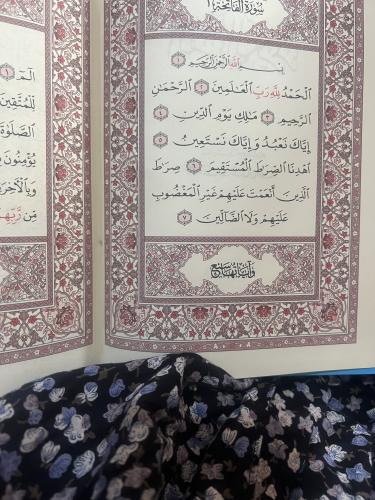 سُورَةُ الفَاتِحَةِ
بِسْمِ اللَّهِ الرَّحْمَٰنِ الرَّحِيمِ ١
الْحَمْدُ لِلَّهِ رَبِّ الْعَالَمِينَ ٢ الرَّحْمَٰنِ
الرَّحِيمِ ٣ مَالِكِ يَوْمِ الدِّينِ ٤
إِيَّاكَ نَعْبُدُ وَإِيَّاكَ نَسْتَعِينُ ٥
اهْدِنَا الصِّرَاطَ الْمُسْتَقِيمَ ٦ صِرَاطَ
الَّذِينَ أَنْعَمْتَ عَلَيْهِمْ غَيْرِ الْمَغْضُوبِ
عَلَيْهِمْ وَلَا الضَّالِّينَ ٧
وَآيَاتُهَا سَبْعٌ
الٓمٓ ١
لِلْمُتَّقِينَ
الصَّلَوٰةَ
يُؤْمِنُونَ
وَبِالْآخِرَةِ
مِّن رَّبِّهِمْ